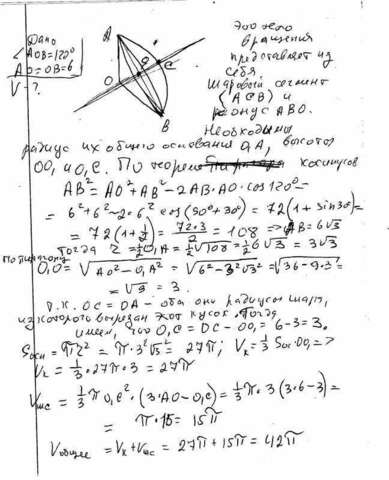 Дано
∠AOB=120°
AO=OB=6
V-?
A
O
C
B
Это тело
вращения
представляет из
себя
Шаровый сегмент
(ACB) и
конус ABO.
Необходимы
радиус их общего основания O₁A, высоты
OO₁ и O₁C. По теореме косинусов
AB²=AO²+AB²-2AB·AO·cos120°=
=6²+6²-2·6² cos(90°+30°)=72(1+sin30°)=
=72(1+1/2)=72·3/2=108 => AB=6√3
Тогда r=1/2 O₁A=1/2√108=1/2 6√3=3√3
По пифагору
O₁O=√(AO²-O₁A²)=√(6²-3²√3²)=√(36-9·3)=
=√9=3.
т.к. OC=OA - оба они радиусы шара,
из которого вырезан этот кусок. Тогда
имеем, что O₁C=OC-OO₁=6-3=3.
Sосн=πr²=π·3²√3²=27π; Vк=1/3 Sос·OO₁=>
Vк=1/3·27π·3=27π
Vшс=1/3πO₁C²·(3·AO-O₁C)=1/3π·3(3·6-3)=
=π·15=15π
Vобщее=Vк+Vшс=27π+15π=42π